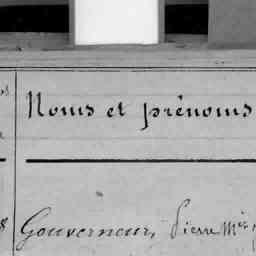 Noms et prénoms
Gouverneur, Pierre Mie